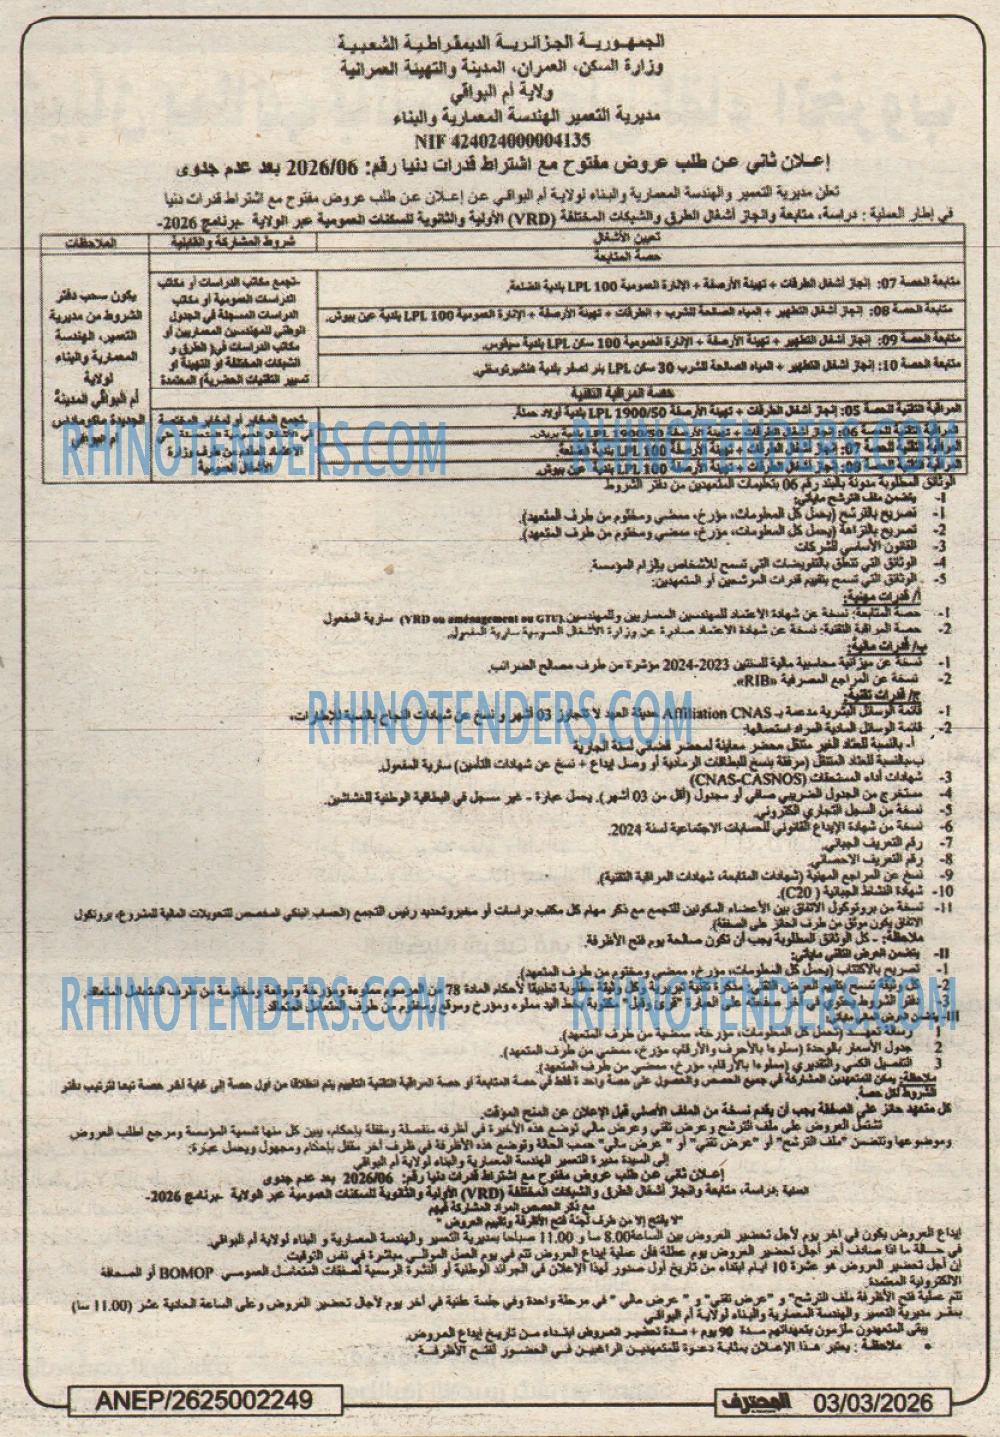 الجمهورية الجزائرية الديمقراطية الشعبية
وزارة السكن، العمران، المدينة والتهيئة العمرانية
ولاية أم البواقي
مديرية التعمير الهندسة المعمارية والبناء
NIF 424024000004135
إعلان ثاني عن طلب عروض مفتوح مع اشتراط قدرات دنيا رقم: 2026/06 بعد عدم جدوى
تعلن مديرية التعمير والهندسة المعمارية والبناء لولاية أم البواقي عن إعلان عن طلب عروض مفتوح مع اشتراط قدرات دنيا
في إطار العملية : دراسة، متابعة وانجاز أشغال الطرق والشبكات المختلفة (VRD) الأولية والثانوية للسكنات العمومية عبر الولاية -برنامج 2026-
تعيين الأشغال
شروط المشاركة والقابلية
الملاحظات
حصة المتابعة
متابعة الحصة 07: إنجاز أشغال الطرقات + تهيئة الأرصفة + الإنارة العمومية 100 LPL بلدية الضلعة.
متابعة الحصة 08: إنجاز أشغال التطهير + المياه الصالحة للشرب + الطرقات + تهيئة الأرصفة + الإنارة العمومية 100 LPL بلدية عين ببوش.
متابعة الحصة 09: إنجاز أشغال التطهير + تهيئة الأرصفة + الإنارة العمومية 100 سكن LPL بلدية سيقوس.
متابعة الحصة 10: إنجاز أشغال التطهير + المياه الصالحة للشرب 30 سكن LPL بئر لصفر بلدية هنشير تومغني.
-تجمع مكاتب الدراسات أو مكاتب
الدراسات العمومية أو مكاتب
الدراسات المسجلة في الجدول
الوطني للمهندسين المعماريين أو
مكاتب الدراسات في( الطرق و
الشبكات المختلفة أو التهيئة أو
تسيير التقنيات الحضرية) المعتمدة
يكون سحب دفتر
الشروط من مديرية
التعمير، الهندسة
المعمارية والبناء
لولاية
أم البواقي المدينة
الجديدة ماكوماداس
أم البواقي
حصة المراقبة التقنية
المراقبة التقنية للحصة 05: إنجاز أشغال الطرقات + تهيئة الأرصفة 1900/50 LPL بلدية أولاد حملة.
المراقبة التقنية للحصة 06: إنجاز أشغال الطرقات + تهيئة الأرصفة 1900/50 LPL بلدية بريش.
المراقبة التقنية للحصة 07: إنجاز أشغال الطرقات + تهيئة الأرصفة 100 LPL بلدية الضلعة.
المراقبة التقنية للحصة 08: إنجاز أشغال الطرقات + تهيئة الأرصفة 100 LPL بلدية عين ببوش.
-تجمع المخابر أو لمخابر المختصة
في الأشغال العمومية المتحصلة على
الاعتماد الصادر من طرف وزارة
الأشغال العمومية
RHINOTENDERS.COM
RHINOTENDERS.COM
الوثائق المطلوبة مدونة بالبند رقم 06 بتعليمات المتعهدين من دفتر الشروط
I- يتضمن ملف الترشح مايأتي:
1- تصريح بالترشح (يحمل كل المعلومات، مؤرخ، ممضي ومختوم من طرف المتعهد).
2- تصريح بالنزاهة (يحمل كل المعلومات، مؤرخ، ممضي ومختوم من طرف المتعهد).
3- القانون الأساسي للشركات
4- الوثائق التي تتعلق بالتفويضات التي تسمح للأشخاص بإلزام المؤسسة.
5- الوثائق التي تسمح بتقييم قدرات المرشحين أو المتعهدين:
أ/ قدرات مهنية:
1- حصة المتابعة: نسخة عن شهادة الاعتماد للمهندسين المعماريين وللمهندسين.(VRD ou aménagement ou GTU) سارية المفعول
2- حصة المراقبة التقنية: نسخة عن شهادة الاعتماد صادرة عن وزارة الأشغال العمومية سارية المفعول.
ب/ قدرات مالية:
1- نسخة عن ميزانية محاسبية مالية للسنتين 2023-2024 مؤشرة من طرف مصالح الضرائب.
2- نسخة عن المراجع المصرفية «RIB».
ج/ قدرات تقنية:
1- قائمة الوسائل البشرية مدعمة بـ Affiliation CNAS حديثة العهد لا تتجاوز 03 أشهر و نسخ عن شهادات النجاح بالنسبة للإطارات،
2- قائمة الوسائل المادية المراد استعمالها:
RHINOTENDERS.COM
أ- بالنسبة للعتاد الغير متنقل محضر معاينة لمحضر قضائي لسنة الجارية
ب-بالنسبة للعتاد المتنقل (مرفقة بنسخ للبطاقات الرمادية أو وصل إيداع + نسخة عن شهادات التأمين) سارية المفعول.
3- شهادات أداء المستحقات (CNAS-CASNOS)
4- مستخرج من الجدول الضريبي صافي أو مجدول (أقل من 03 أشهر). يحمل عبارة - غير مسجل في البطاقية الوطنية للغشاشين.
5- نسخة من السجل التجاري الكتروني.
6- نسخة من شهادة الإيداع القانوني للحسابات الاجتماعية لسنة 2024.
7- رقم التعريف الجبائي.
8- رقم التعريف الاحصائي.
9- نسخ عن المراجع المهنية (شهادات المتابعة، شهادات المراقبة التقنية).
10- شهادة النشاط الجبائية ( C20).
11- نسخة من بروتوكول الاتفاق بين الأعضاء المكونين للتجمع مع ذكر مهام كل مكتب دراسات أو مخبر وتحديد رئيس التجمع (الحساب البنكي المخصص للتحويلات المالية للمشروع، بروتكول
الاتفاق يكون موثق من طرف الحائز على الصفقة).
ملاحظة: - كل الوثائق المطلوبة يجب أن تكون صالحة يوم فتح الأظرفة.
II- يتضمن العرض التقني مايأتي:
1- تصريح بالاكتتاب (يحمل كل المعلومات، مؤرخ، ممضي ومختوم من طرف المتعهد).
2- كل وثيقة تسمح بتقييم العرض التقني: مذكرة تقنية تبريرية وكل وثيقة مطلوبة تطبيقا لأحكام المادة 78 من المرسوم مملوءة ومؤرخة وموقعة ومختومة من طرف المتعامل المتعاقد
3- دفتر الشروط يحتوي في آخر صفحته على العبارة "قرئ وقبل" مكتوبة بخط اليد مملوء ومؤرخ وموقع ومختوم من طرف المتعامل المتعاقد.
RHINOTENDERS.COM
RHINOTENDERS.COM
III- يتضمن العرض المالي مايأتي:
1 رسالة تعهد (تحمل كل المعلومات، مؤرخة، ممضية من طرف المتعهد).
2 جدول الأسعار بالوحدة (مملوءا بالأحرف والأرقام، مؤرخ، ممضي من طرف المتعهد).
3 التفصيل الكمي والتقديري (مملوءا بالأرقام، مؤرخ، ممضي من طرف المتعهد).
ملاحظة: يمكن للمتعهدين المشاركة في جميع الحصص والحصول على حصة واحدة فقط في حصة المتابعة أو حصة المراقبة التقنية التقييم يتم انطلاقا من أول حصة إلى غاية آخر حصة تبعا لترتيب دفتر
الشروط لكل حصة.
كل متعهد حائز على الصفقة يجب أن يقدم نسخة من الملف الأصلي قبل الإعلان عن المنح المؤقت.
تشتمل العروض على ملف الترشح وعرض تقني وعرض مالي توضع هذه الأخيرة في أظرفه منفصلة ومقفلة بإحكام، يبين كل منها تسمية المؤسسة ومرجع اطلب العروض
وموضوعها وتتضمن "ملف الترشح" أو "عرض تقني" أو " عرض مالي" حسب الحالة وتوضع هذه الأظرفة في ظرف آخر مقفل بإحكام ومجهول ويحمل عبارة:
إلى السيدة مديرة التعمير الهندسة المعمارية والبناء لولاية أم البواقي
إعلان ثاني عن طلب عروض مفتوح مع اشتراط قدرات دنيا رقم: 2026/06 بعد عدم جدوى
العملية :دراسة، متابعة وانجاز أشغال الطرق والشبكات المختلفة (VRD) الأولية والثانوية للسكنات العمومية عبر الولاية -برنامج 2026-
مع ذكر الحصص المراد المشاركة فيهم
"لا يفتح إلا من طرف لجنة فتح الأظرفة وتقييم العروض "
إيداع العروض يكون في اخر يوم لأجل تحضير العروض بين الساعة 8.00 سا و 11.00 صباحا بمديرية التعمير والهندسة المعمارية و البناء لولاية أم البواقي.
في حالة ما اذا صادف آخر أجال تحضير العروض يوم عطلة فإن عملية إيداع العروض تتم في يوم العمل الموالي مباشرة في نفس التوقيت.
إن أجل تحضير العروض هو عشرة 10 ايام ابتداء من تاريخ أول صدور لهذا الإعلان في الجرائد الوطنية أو النشرة الرسمية لصفقات المتعامل العمومي BOMOP أو الصحافة
الالكترونية المعتمدة.
تتم عملية فتح الأظرفة ملف الترشح" و "عرض تقني" و " عرض مالي " في مرحلة واحدة وفي جلسة علنية في آخر يوم لآجال تحضير العروض وعلى الساعة الحادية عشر (11.00 سا)
بمقر مديرية التعمير والهندسة المعمارية والبناء لولاية أم البواقي
يبقى المتعهدون ملزمون بتعهداتهم مدة 90 يوم + مدة تحضير العروض ابتداء من تاريخ إيداع العروض.
• ملاحظة : يعتبر هذا الإعلان بمثابة دعوة للمتعهدين الراغبين في الحضور لفتح الأظرفة.
ANEP/2625002249
المحترف 03/03/2026